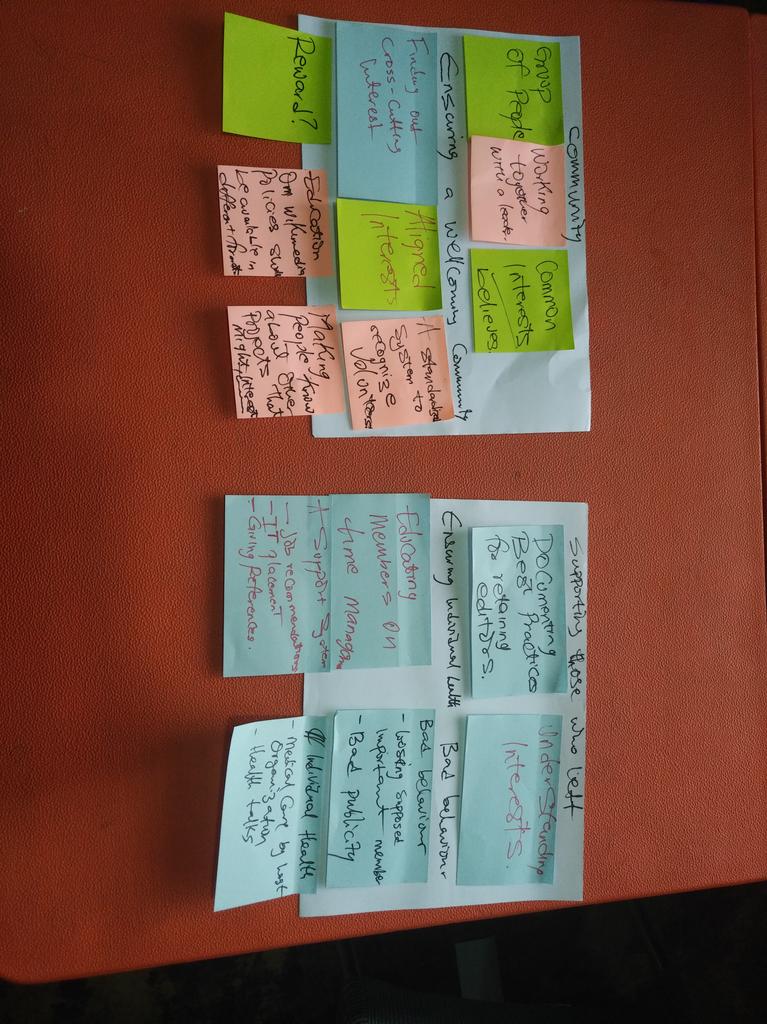 Community
Group
of People
Working
together
with a leader
Common
Interests
believes.
Ensuring a welcoming Community
Finding out
Cross-Cutting
Interest
Aligned
Interests
A standardized
System to
recognize
Volunteers
Reward?
Education
On Wikimedia
Policies
be available in
different formats
Making
People Know
about Other
Projects that
might interest
Supporting those who left
Documenting
Best Practices
for retaining
editors.
Understanding
Interests.
Ensuring Individual health
Bad behaviour
Educating
Members on
time Manage
A Support System
- Job recommendations
- IT placement
- Giving References.
Bad behaviour
- Losing supposed
important member
- Bad publicity
# Individual Health
- Medical Care by host
Organization
- Health talks